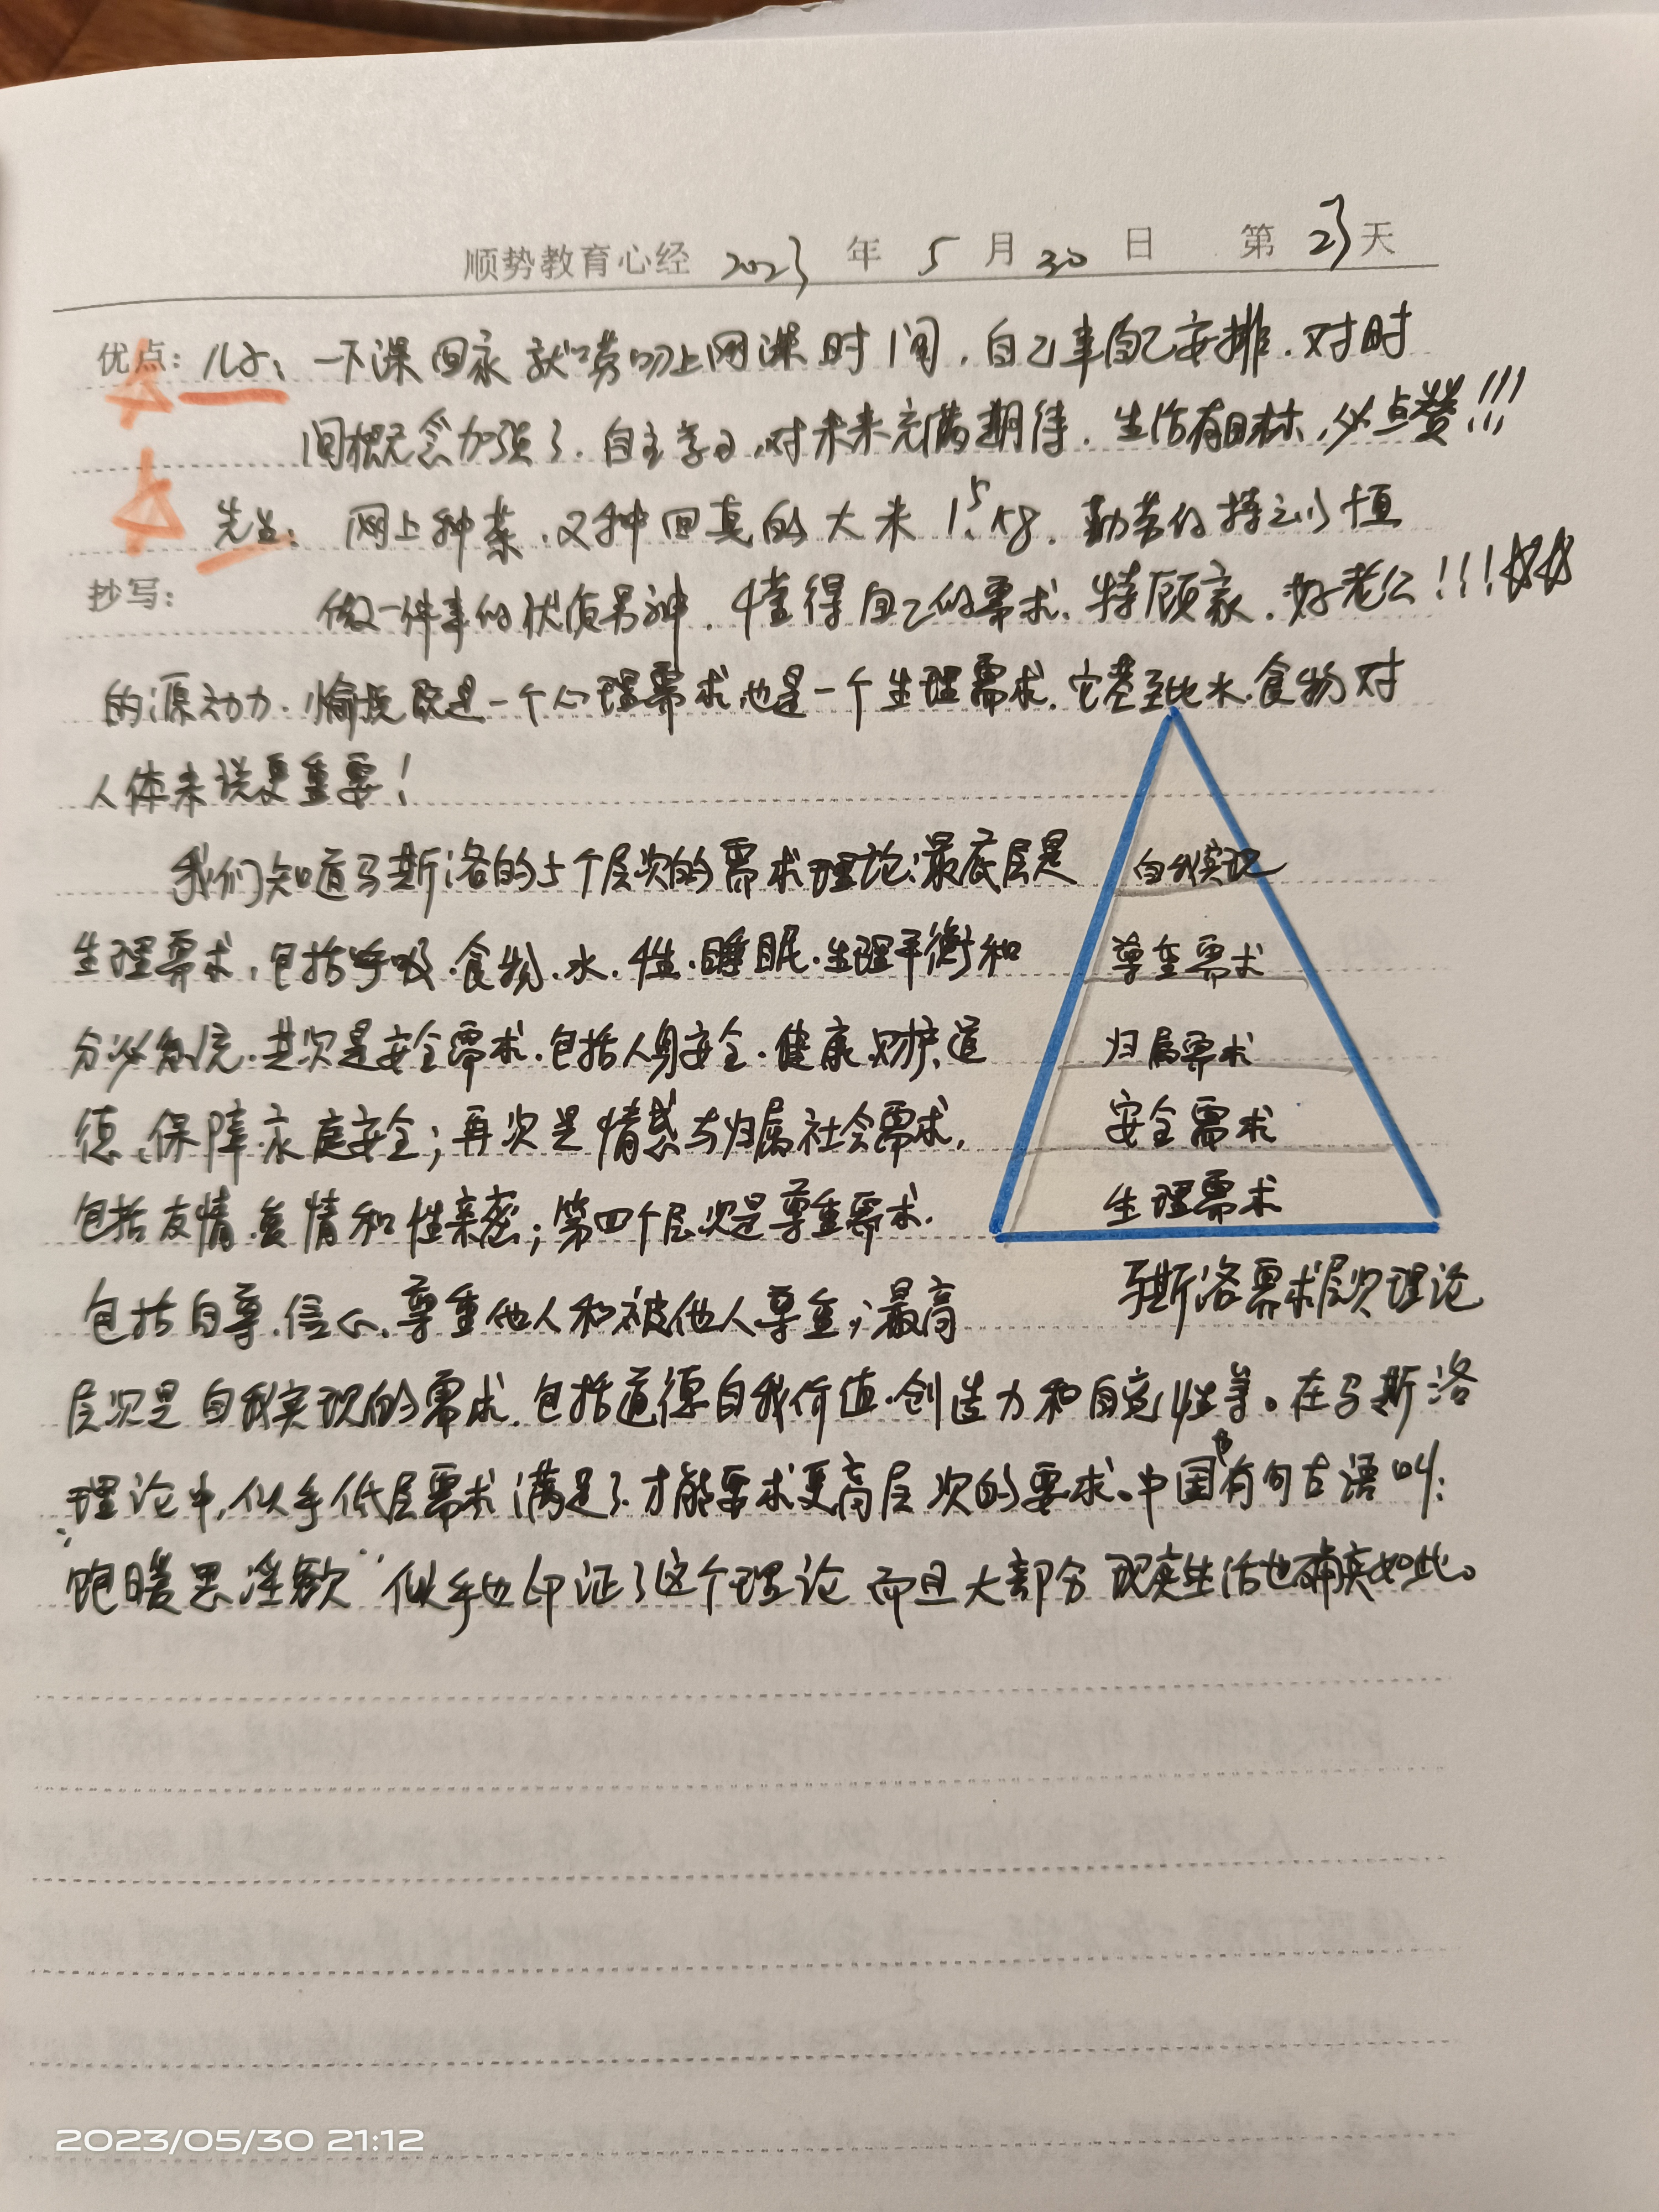 顺势教育心经 2023 年 5 月 30 日 第 23 天
优点: 儿子: 一下课回家就问上网课时间,自己事自己安排.对时
间概念加强了.自主学习,对未来充满期待.生活有目标,必点赞!!!
先生: 网上种菜,又种回真的大米1.5kg.勤劳的持之以恒
抄写:
做一件事的优质男神.懂得自己的需求.特顾家.好老公!!!
的源动力.愉悦既是一个心理需求,也是一个生理需求.它甚至比水.食物对
人体来说更重要!
我们知道马斯洛的5个层次的需求理论:最底层是
生理需求,包括呼吸.食物.水.性.睡眠.生理平衡和
分泌系统.其次是安全需求.包括人身安全.健康.财产.道
德、保障.家庭安全;再次是情感与归属社会需求,
包括友情.爱情和性亲密;第四个层次是尊重需求.
包括自尊.信心、尊重他人和被他人尊重;最高
层次是自我实现的需求.包括道德自我价值.创造力和自觉性等。在马斯洛
理论中,似乎低层需求满足了.才能要求更高层次的要求。中国有句古语叫:
"饱暖思淫欲"似乎也印证了这个理论 而且大部分现实生活也确实如此。
自我实现
尊重需求
归属需求
安全需求
生理需求
马斯洛需求层次理论
2023/05/30 21:12